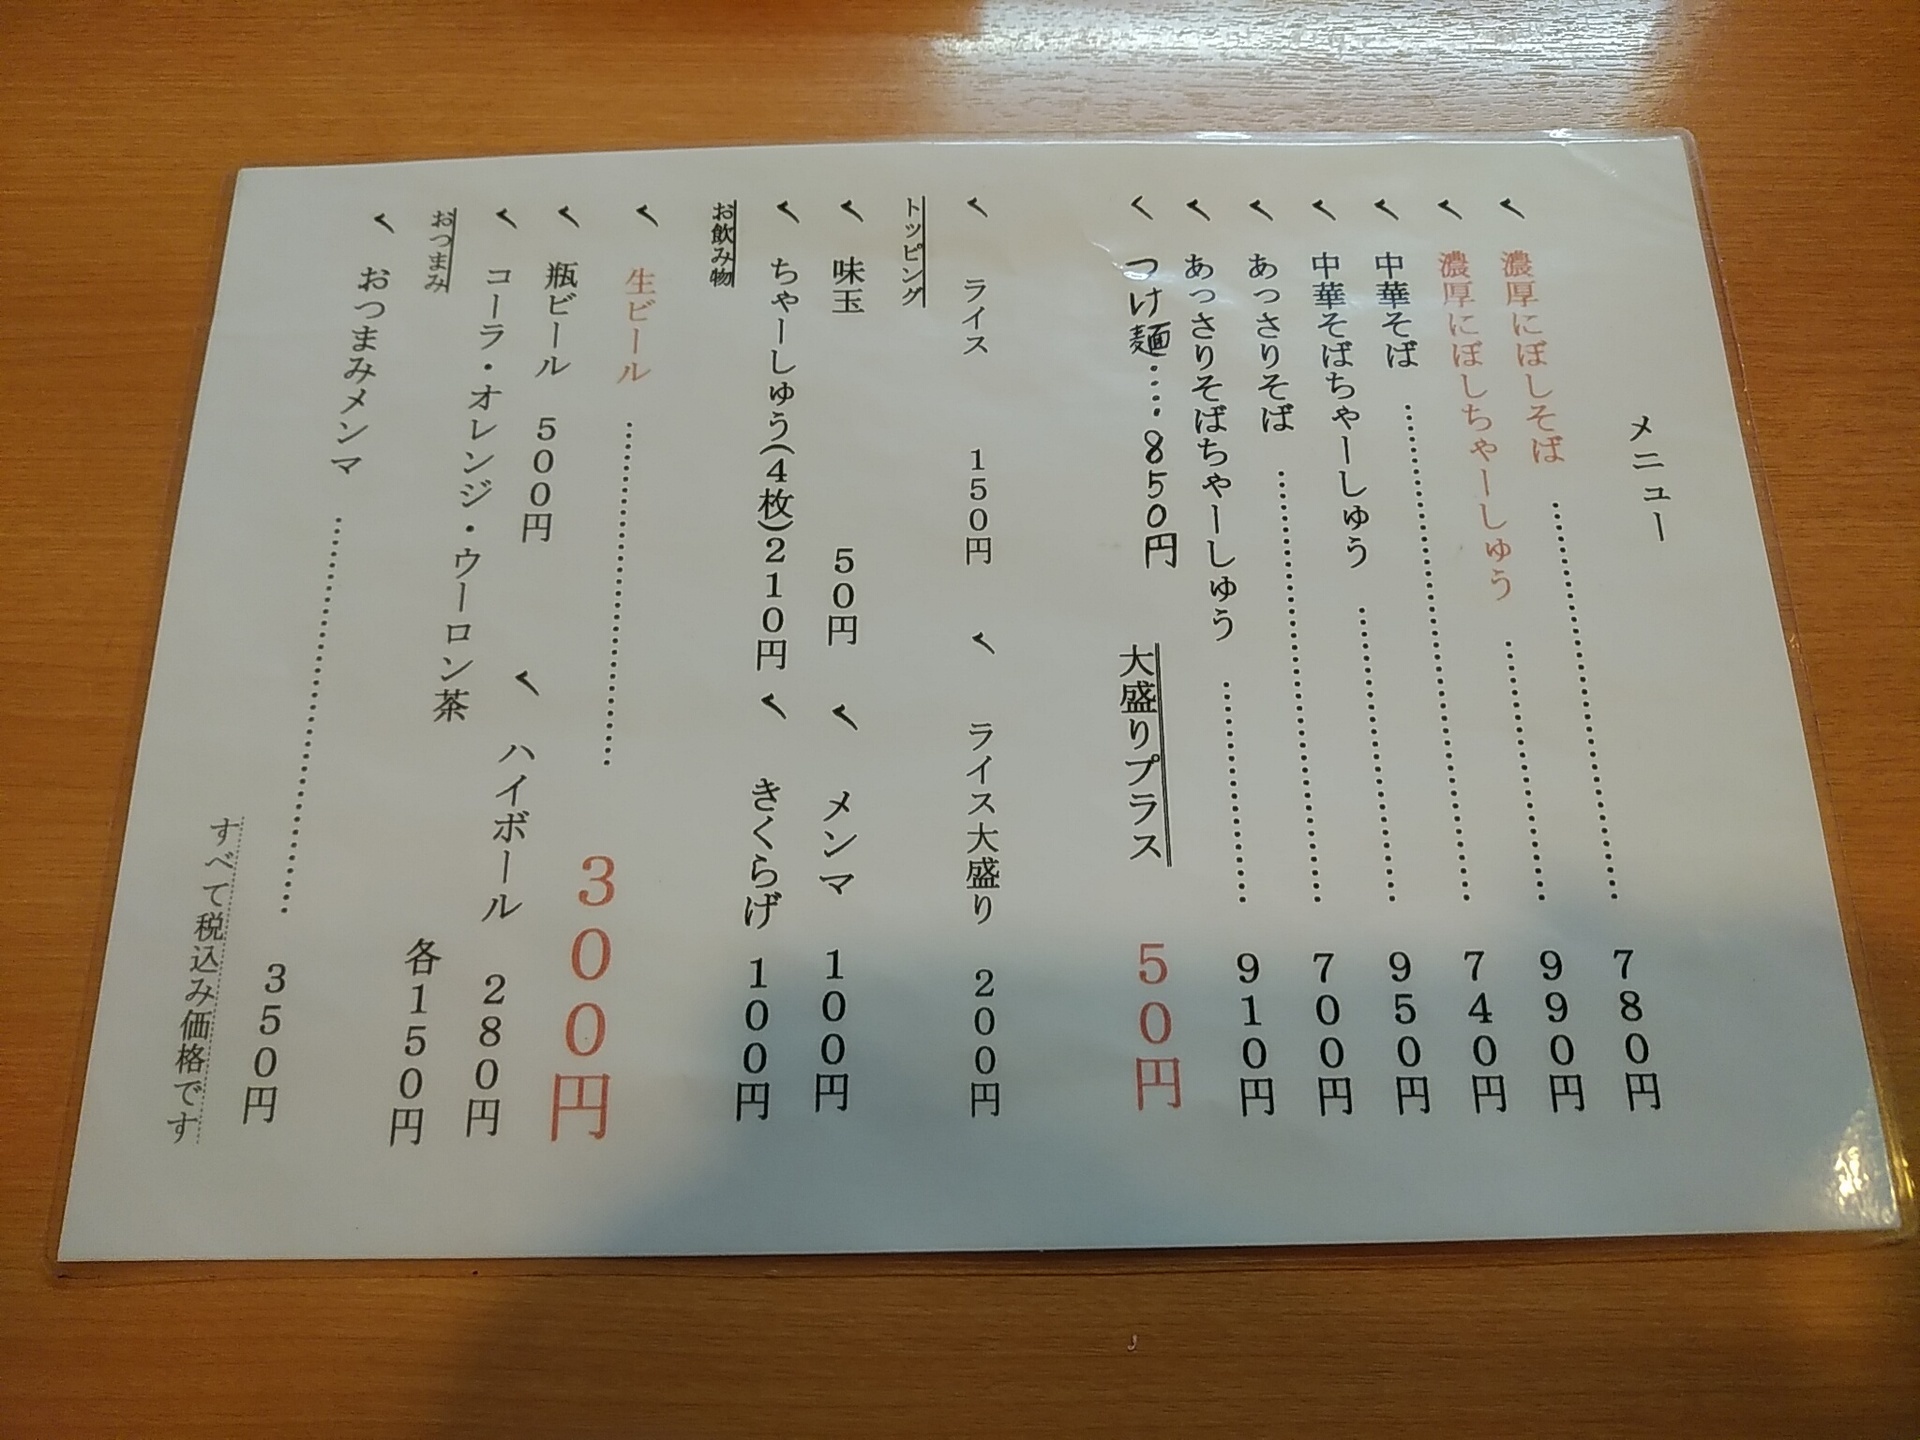 メニュー
く 濃厚にぼしそば………………780円
く 濃厚にぼしちゃーしゅう…………990円
く 中華そば……………………740円
く 中華そばちゃーしゅう……………950円
く あっさりそば…………………700円
く あっさりそばちゃーしゅう…………910円
く つけ麺……850円 大盛りプラス 50円
く ライス 150円 く ライス大盛り 200円
トッピング
く 味玉 50円 く メンマ 100円
く ちゃーしゅう(4枚)210円 く きくらげ 100円
お飲み物
く 生ビール……………………300円
く 瓶ビール 500円 く ハイボール 280円
く コーラ・オレンジ・ウーロン茶 各150円
おつまみ
く おつまみメンマ…………………350円
すべて税込み価格です